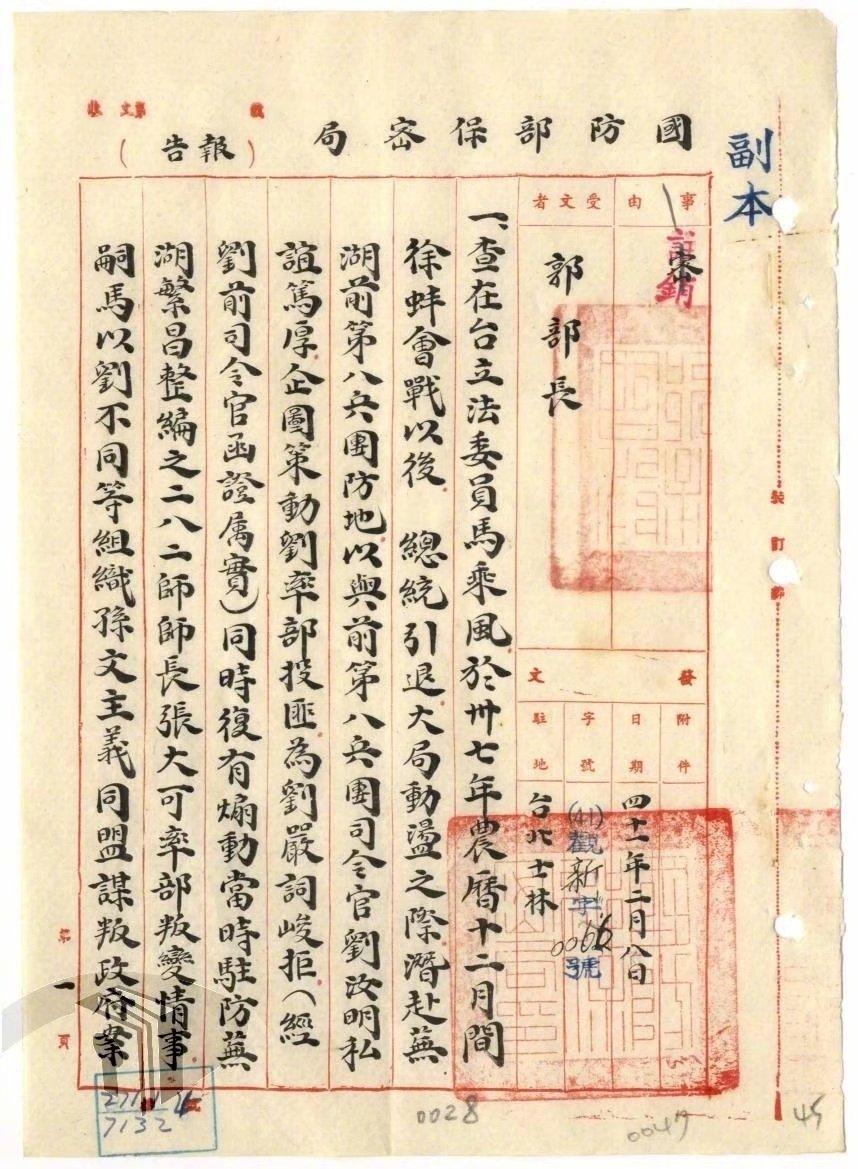 副本
國防部保密局
(報告)
事由
受文者
密
註銷
郭部長
發文
附件
日期
四十一年二月八日
字號
(41)觀新字0066號
駐地
台北士林
裝訂
一、查在台立法委員馬乘風於卅七年農曆十二月間
徐蚌會戰以後 總統引退大局動盪之際潛赴蕪
湖前第八兵團防地以與前第八兵團司令官劉汝明私
誼篤厚企圖策動劉率部投匪為劉嚴詞峻拒(經
劉前司令官函證属實)同時復有煽動當時駐防蕪
湖繁昌整編之二八二師師長張大可率部叛變情事
嗣馬以劉不同等組織孫文主義同盟謀叛政府案
第一頁
0028
0047
45